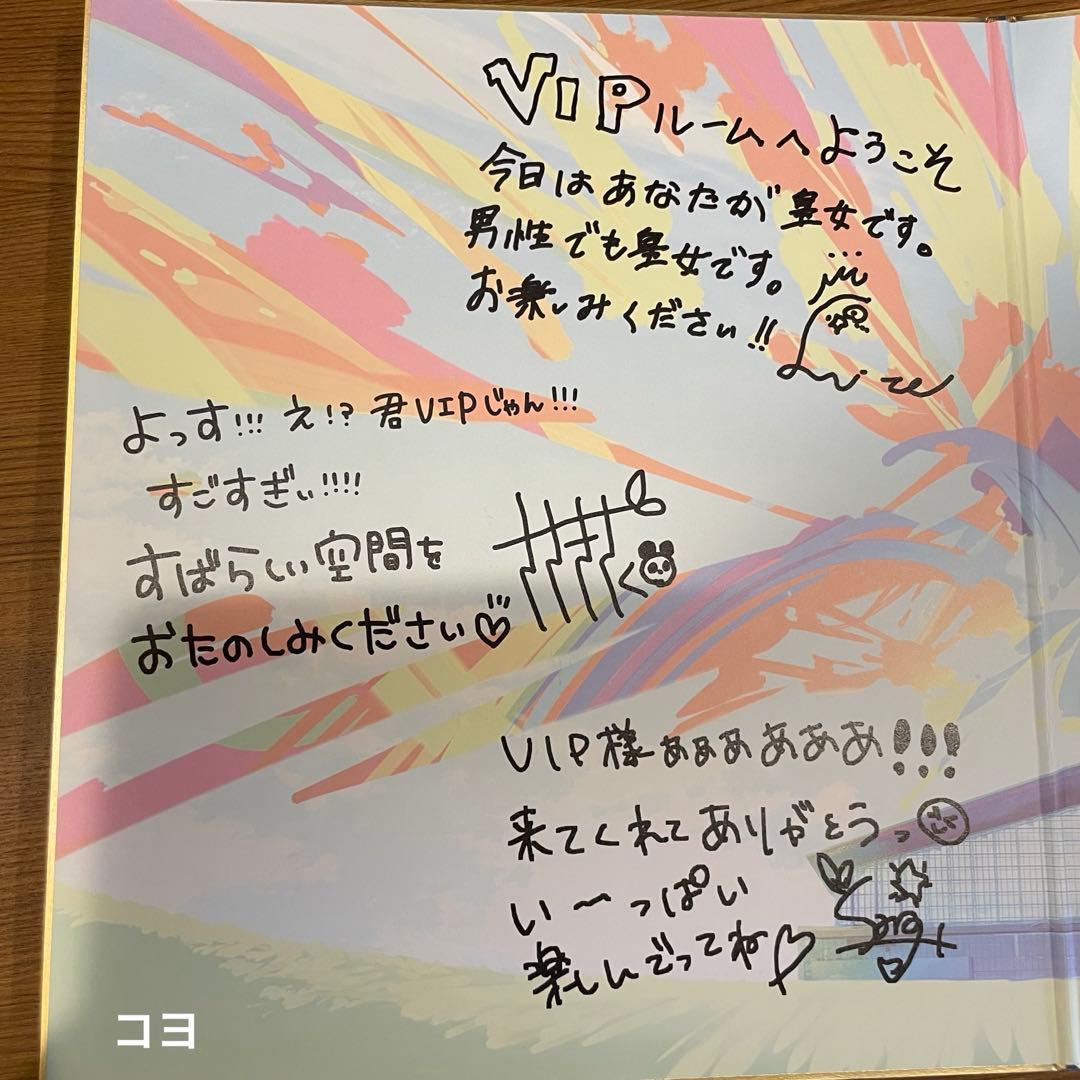 VIPルームへようこそ
今日はあなたが皇女です。
男性でも皇女です。
お楽しみください!!
よっす!!! え!? 君VIPじゃん!!!
すごすぎぃ!!!!
すばらしい空間を
おたのしみください♡
VIP様ぁぁぁあああ!!!
来てくれてありがとうっ
い〜っぱい
楽しんでってね♡
コヨ